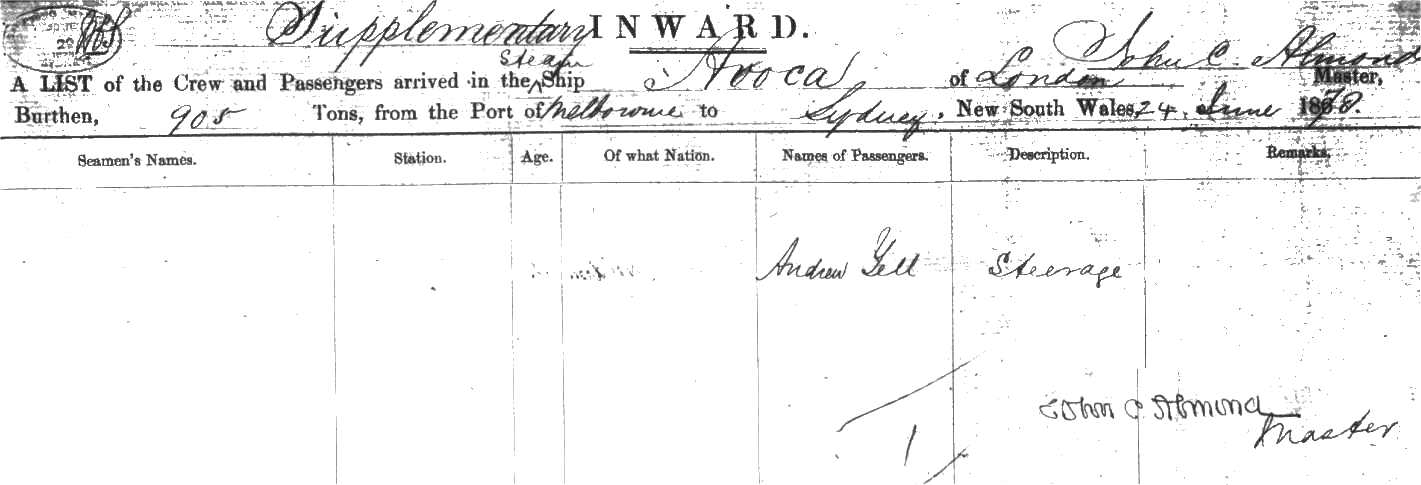 Supplementary INWARD.
A LIST of the Crew and Passengers arrived in the Steam Ship Avoca of London John C. Almond Master,
Burthen, 905 Tons, from the Port of Melbourne to Sydney, New South Wales, 24 June 1878.
Seamen's Names. Station. Age. Of what Nation. Names of Passengers. Description. Remarks.
Andrew Yell Steerage
John C Almond
Master
1